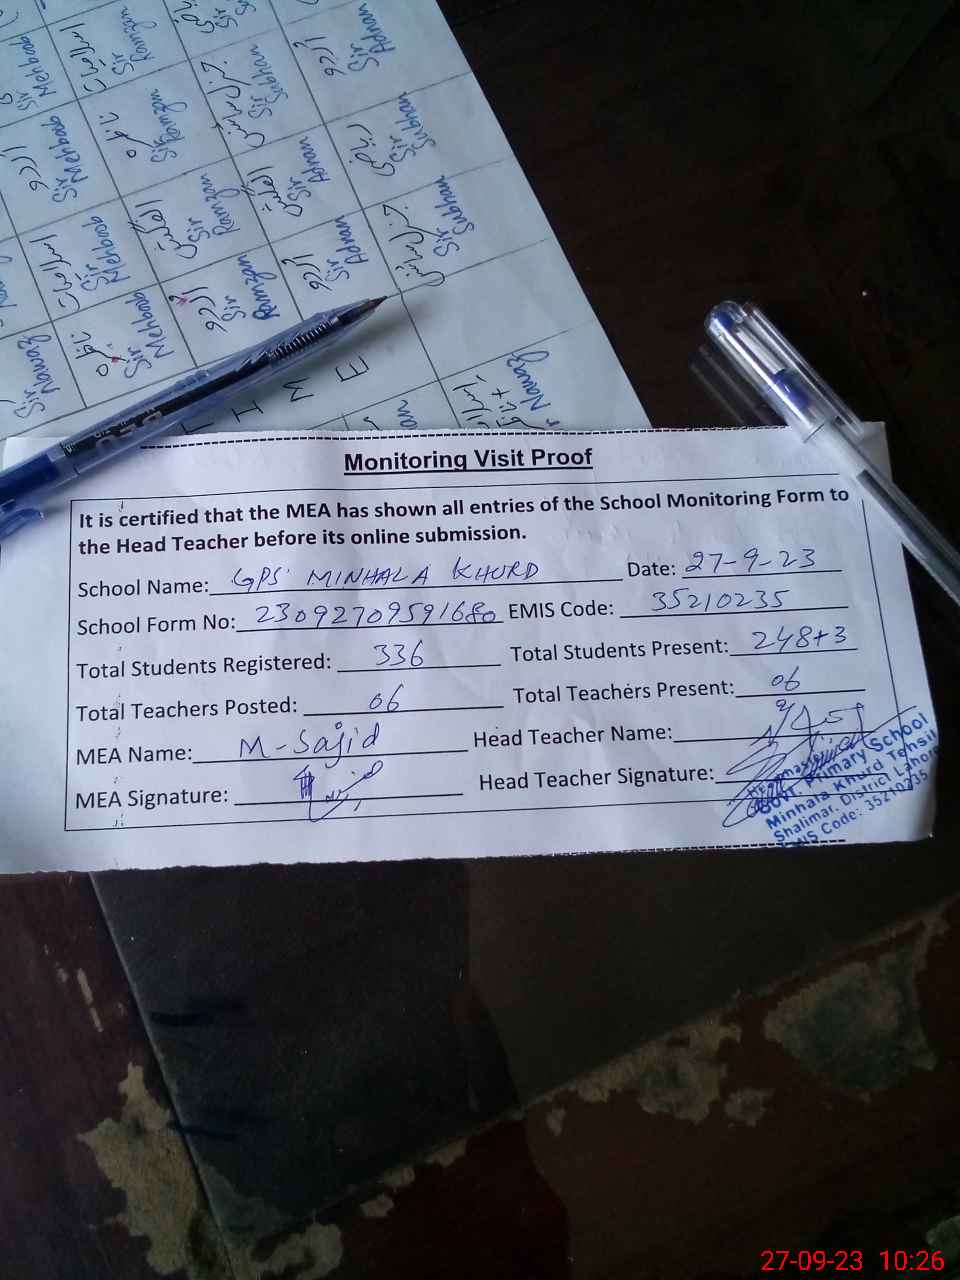 Sir Mehboob
اسلامیات Sir Ramzan
Sir
اردو Sir Adnan
اردو Sir Mehboob
ناظرہ Sir Ramzan
جنرل سائنس Sir Subhan
ریاضی Sir Subhan
اسلامیات Sir Mehboob
انگلش Sir Ramzan
انگلش Sir Adnan
جنرل سائنس Sir Subhan
Sir Nawaz
ناظرہ Sir Mehboob
اردو Sir Ramzan
اردو Sir Adnan
I M E
Nawaz
Monitoring Visit Proof
It is certified that the MEA has shown all entries of the School Monitoring Form to
the Head Teacher before its online submission.
School Name: GPS MINHALA KHURD Date: 27-9-23
School Form No: 23092709591680 EMIS Code: 35210235
Total Students Registered: 336 Total Students Present: 248+3
Total Teachers Posted: 06 Total Teachers Present: 06
MEA Name: M-Sajid Head Teacher Name:
MEA Signature: Head Teacher Signature:
Headmaster
Govt. Primary School
Minhala Khurd Tehsil
Shalimar, District Lahore
EMIS Code: 35210235
27-09-23 10:26